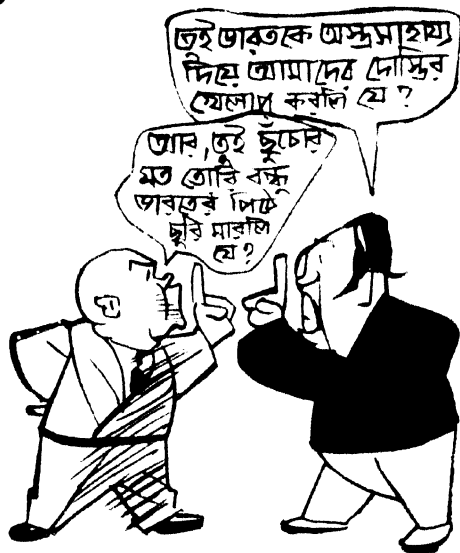 তুই ভারতকে অস্ত্রসাহায্য
দিয়ে আমাদের দোস্তির
খেলাপ করলি যে ?
আর, তুই ছুঁচোর
মত তোরি বন্ধু
ভারতের পিঠে
ছুরি মারলি
যে ?